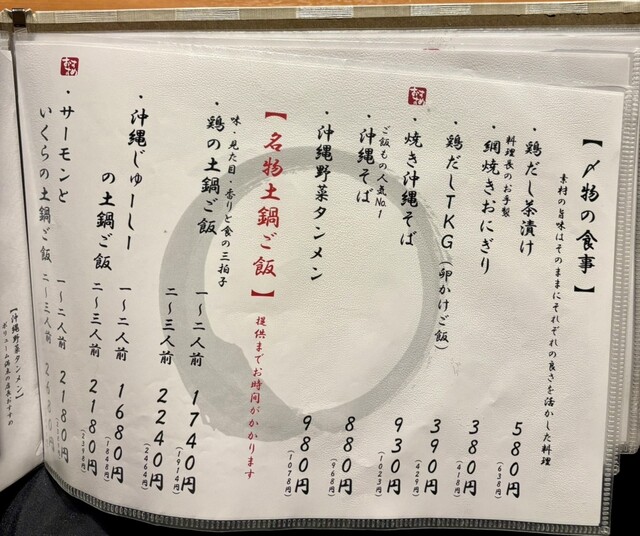 【〆物の食事】
素材の旨味はそのままにそれぞれの良さを活かした料理
・鶏だし茶漬け 580円
(638円)
料理長のお手製
・網焼きおにぎり 380円
(418円)
鶏だしTKG(卵かけご飯) 390円
(429円)
おすすめ
焼き沖縄そば 930円
(1023円)
ご飯もの人気No.1
・沖縄そば 880円
(968円)
沖縄野菜タンメン 980円
(1078円)
【名物土鍋ご飯】 提供までお時間がかかります
味・見た目・香りと食の三拍子
・鶏の土鍋ご飯 一~二人前 1740円
(1914円)
二~三人前 2240円
(2464円)
・沖縄じゅーしー
の土鍋ご飯 一~二人前 1680円
(1848円)
二~三人前 2180円
(2398円)
おすすめ
・サーモンと
いくらの土鍋ご飯 一~二人前 2180円
二~三人前 2680円
【沖縄野菜タンメン】
ボリューム満点の店長おすすめ